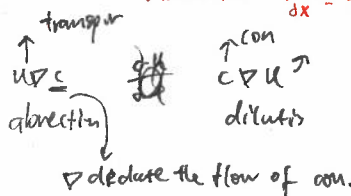 dx
transpor
con
u∇c
c∇u
dilutis
∇ dedcate the flow of con.